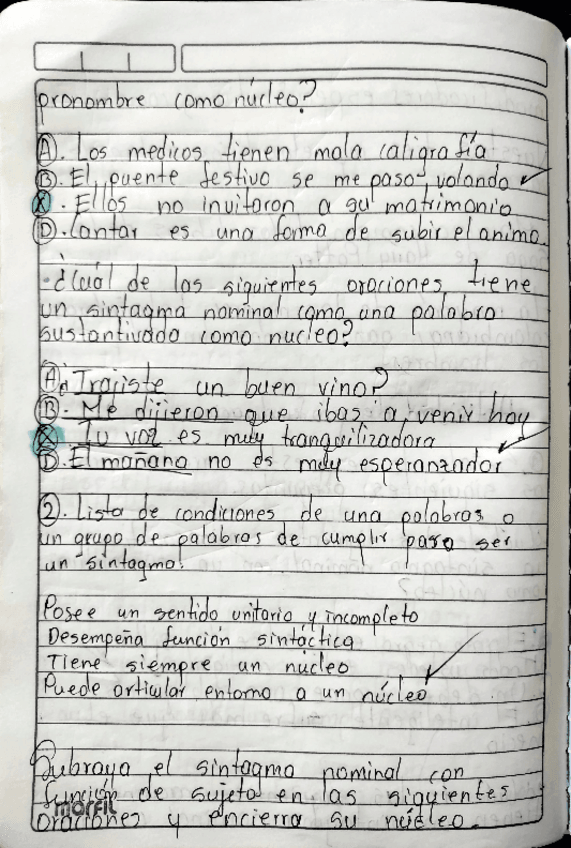 pronombre como núcleo?
A. Los medicos tienen mala caligrafía
B. El puente festivo se me paso volando
X. Ellos no invitaron a su matrimonio
D. Cantar es una forma de subir el animo.
-¿Cuál de las siguientes oraciones tiene
un sintagma nominal como una palabra
sustantivada como nucleo?
A. ¿Trajiste un buen vino?
B. Me dijieron que ibas a venir hoy
X. Tu voz es muy tranquilizadora
D. El mañana no es muy esperanzador
2. Lista de condiciones de una palabras o
un grupo de palabras de cumplir para ser
un sintagma:
Posee un sentido unitario y incompleto
Desempeña función sintáctica
Tiene siempre un núcleo
Puede articular entorno a un núcleo
Subraya el sintagma nominal con
función de sujeto en las siguientes
marfil
oraciones y encierra su núcleo.